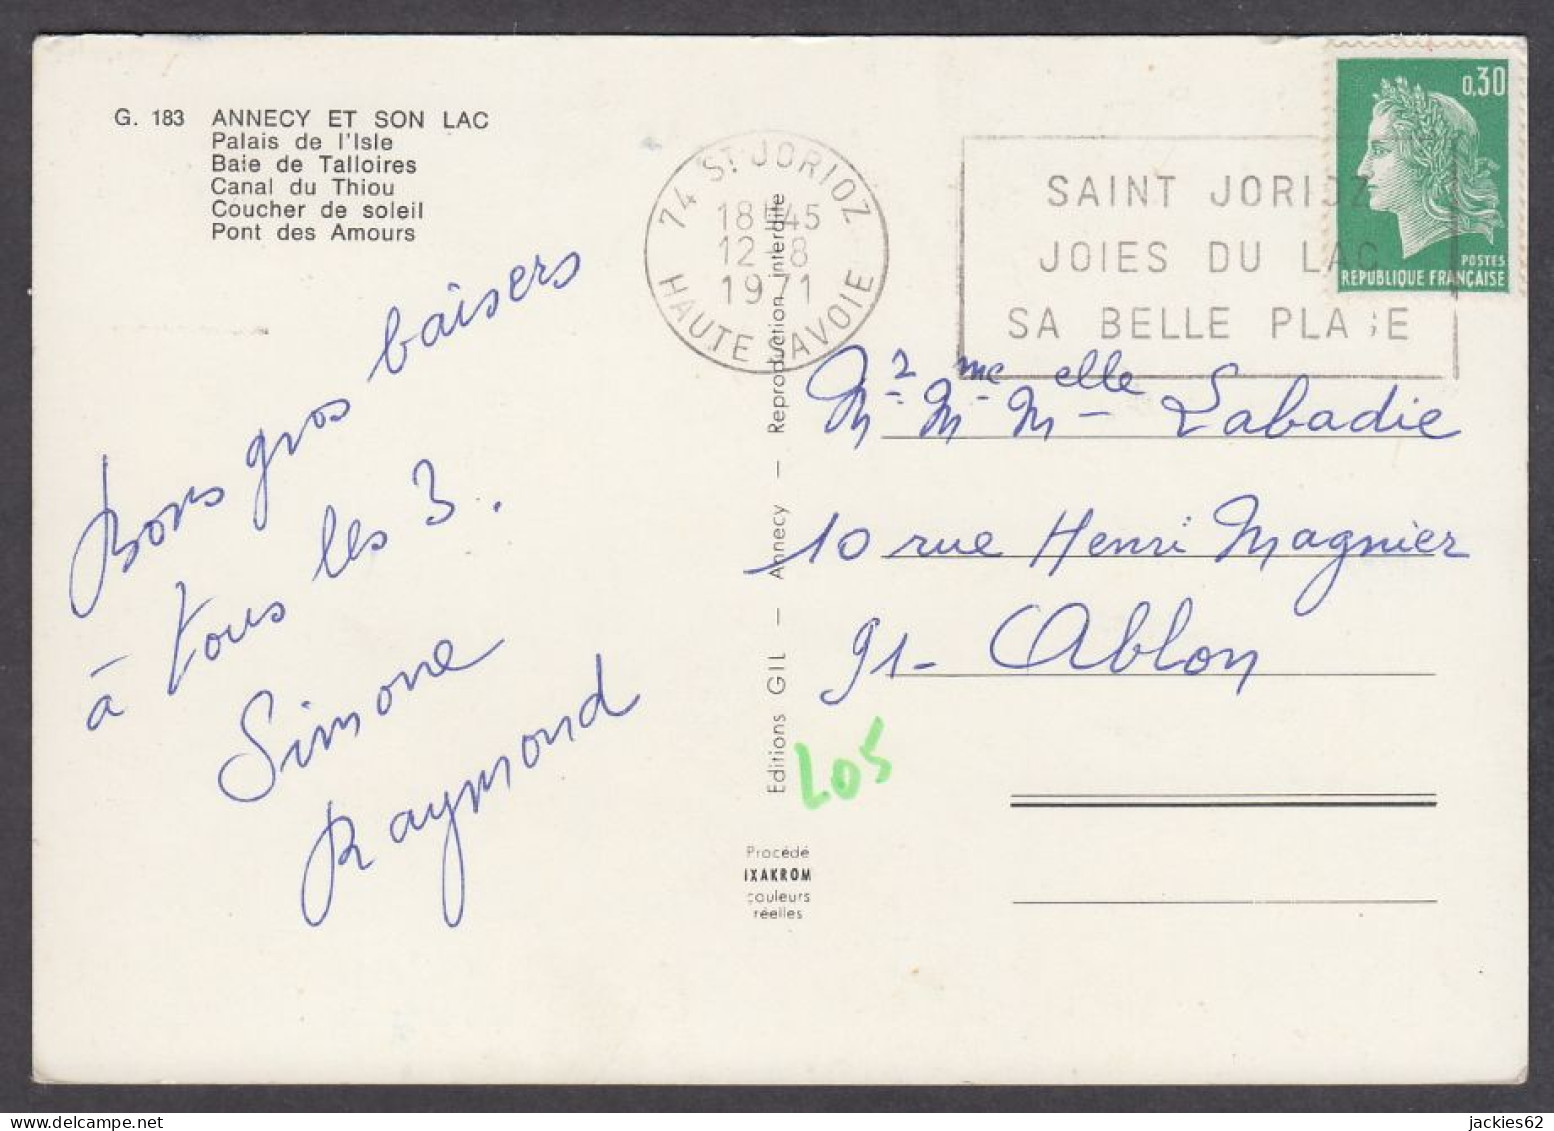 G. 183 ANNECY ET SON LAC
Palais de l'Isle
Baie de Talloires
Canal du Thiou
Coucher de soleil
Pont des Amours
Bons gros baisers
à tous les 3.
Simone
Raymond
74 ST JORIOZ
18H45
12-8
1971
HAUTE SAVOIE
SAINT JORIOZ
JOIES DU LAC
SA BELLE PLAGE
0,30
POSTES
REPUBLIQUE FRANÇAISE
Mr Mme Melle Labadie
10 rue Henri Magnier
91- Ablon
L05
Editions GIL — Annecy — Reproduction interdite
Procédé
IXAKROM
couleurs
réelles
jackies62